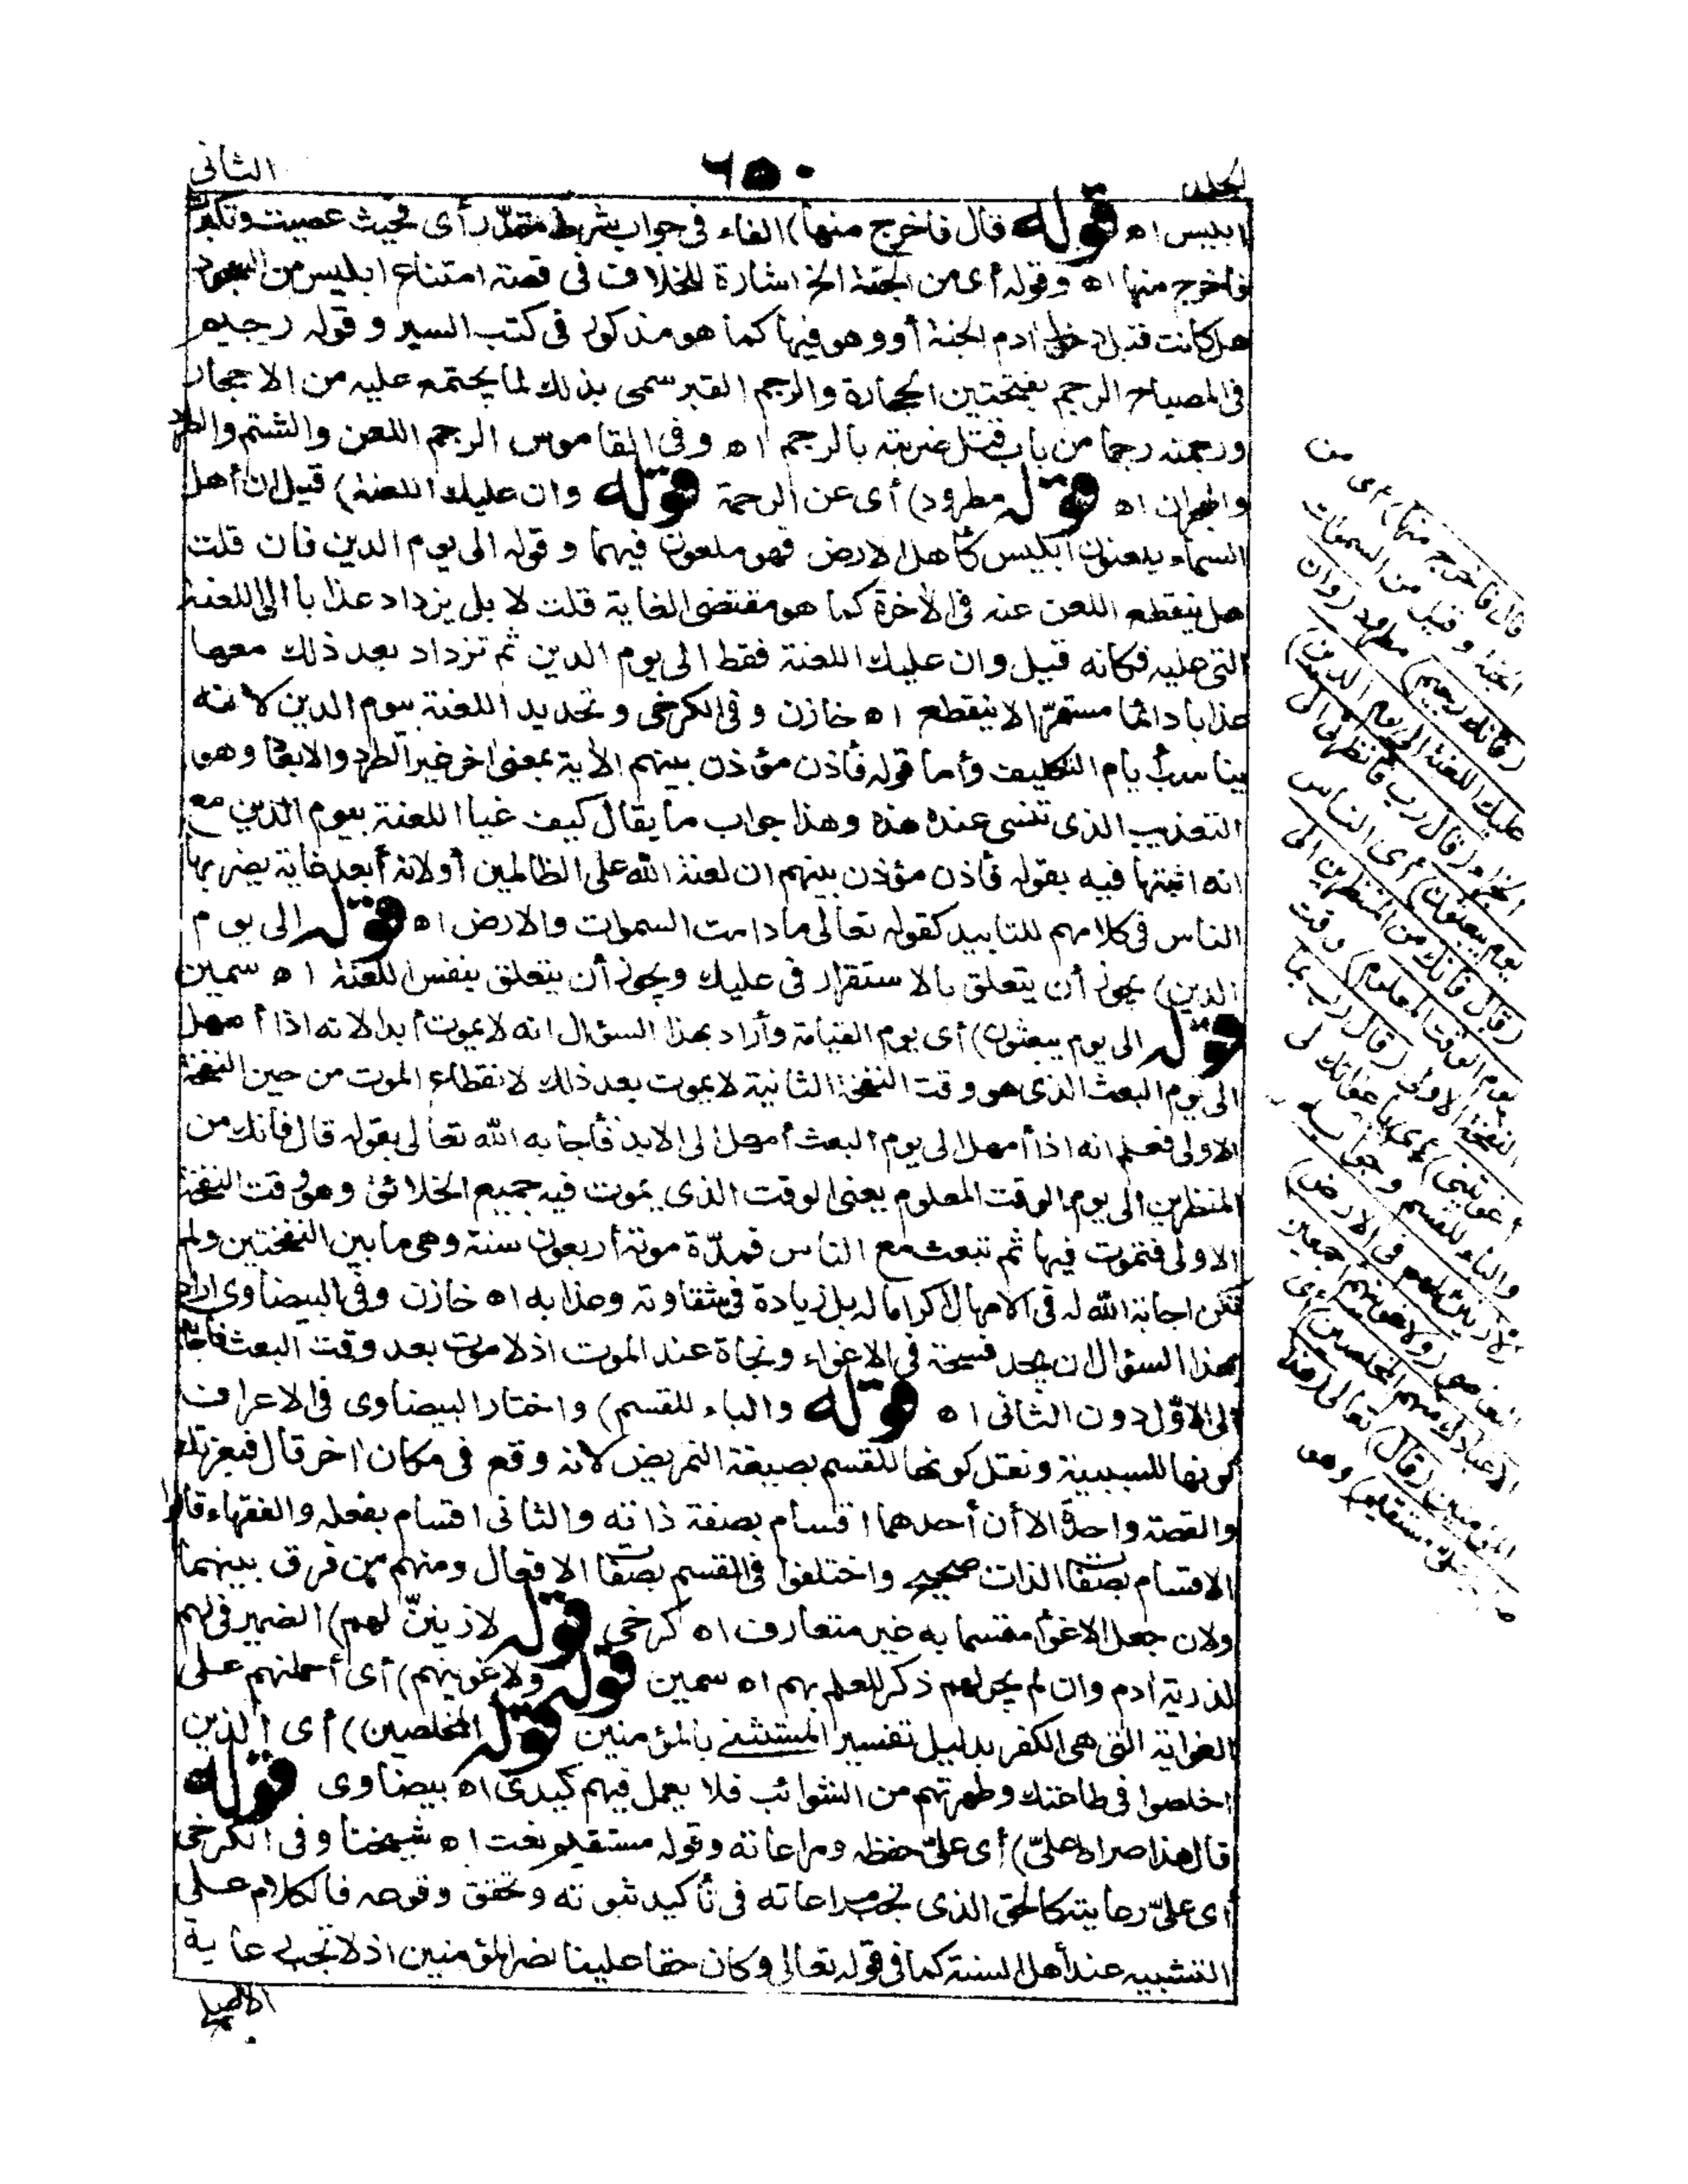 المجلد
٦٥٠
الثانى
ابليس اه قوله قال فاخرج منها) الفاء فى جواب شرط مقدّر أى فحيث عصيت وتكبرت
فاخرج منها اه وقوله أى من الجنة الخ اشارة للخلاف فى قصة امتناع ابليس من السجود
هل كانت قبل دخول ادم الجنة أو وهو فيها كما هو مذكور فى كتب السير وقوله رجيم
فى المصباح الرجم بفتحتين الحجارة والرجم القبر سمى بذلك لما يجتمع عليه من الاحجار
ورجمته رجما من باب قتل ضربته بالرجم اه وفى القاموس الرجم اللعن والشتم والطرد
والهجران اه قوله مطرود) أى عن الرحمة قوله وان عليك اللعنة) قيل ان أهل
السماء يلعنون ابليس كأهل الارض فهو ملعون فيهما وقوله الى يوم الدين فان قلت
هل ينقطع اللعن عنه فى الاخرة كما هو مقتضى الغاية قلت لا بل يزداد عذابا الى اللعنة
التى عليه فكانه قيل وان عليك اللعنة فقط الى يوم الدين ثم تزداد بعد ذلك معها
عذابا دائما مستمرّا لا ينقطع اه خازن وفى الكرخى وتحديد اللعنة بيوم الدين لانه
يناسب أيام التكليف وأما قوله فأذن مؤذن بينهم الأية بمعنى اخر غير الطرد والابعاد وهو
التعذيب الذى تنسى عنده هذه وهذا جواب ما يقال كيف غيا اللعنة بيوم الدين مع
انه اثبتها فيه بقوله فأذن مؤذن بينهم ان لعنة الله على الظالمين أو لانه أبعد غاية يضربها
الناس فى كلامهم للتابيد كقوله تعالى ما دامت السموات والارض اه قوله الى يوم
الدين) يجوز أن يتعلق بالاستقرار فى عليك ويجوز أن يتعلق بنفس اللعنة اه سمين
قوله الى يوم يبعثون) أى يوم القيامة وأراد بهذا السؤال انه لا يموت أبدا لانه اذا أمهل
الى يوم البعث الذى هو وقت النفخة الثانية لا يموت بعد ذلك لانقطاع الموت من حين النفخة
الاولى فعلم انه اذا أمهل الى يوم البعث أمهل الى الابد فأجابه الله تعالى بقوله قال فانك من
المنظرين الى يوم الوقت المعلوم يعنى الوقت الذى يموت فيه جميع الخلائق وهو وقت النفخة
الاولى فتموت فيها ثم تبعث مع الناس فمدّة موته أربعون سنة وهى ما بين النفختين ولم
تكن اجابة الله له فى الامهال اكراما له بل زيادة فى شقاوته وعذابه اه خازن وفى البيضاوى اراد
بهذا السؤال ان يجد فسحة فى الاغواء ونجاة عند الموت اذ لا موت بعد وقت البعث فأجابه
الى الاوّل دون الثانى اه قوله والباء للقسم) واختار البيضاوى فى الاعراف
كونها للسببية ونقل كونها للقسم بصيغة التمريض لانه وقع فى مكان اخر قال فبعزتك
والقصة واحدة الا أن أحدهما اقسام بصفة ذاته والثانى اقسام بفعله والفقهاء قالوا
الاقسام بصفات الذات صحيح واختلفوا فى القسم بصفات الافعال ومنهم من فرق بينهما
ولان جعل الاغوأ مقسما به غير متعارف اه كرخى قوله لازيننّ لهم) الضمير فى لهم
لذرية ادم وان لم يجر لهم ذكر للعلم بهم اه سمين قوله ولاغوينهم) أى أحملنهم على
الغواية التى هى الكفر بدليل تفسير المستثنى بالمؤمنين قوله المخلصين) أى الذين
اخلصوا فى طاعتك وطهرتهم من الشوائب فلا يعمل فيهم كيدى اه بيضاوى قوله
قال هذا صراط علىّ) أى علىّ حفظه ومراعاته وقوله مستقيم نعت اه شيخنا وفى الكرخى
أى علىّ رعايته كالحق الذى تجب مراعاته فى تأكيد ثبوته وتحقق وقوعه فالكلام على
التشبيه عند أهل السنة كما فى قوله تعالى وكان حقا علينا نصر المؤمنين اذ لا تجب رعاية
قال فاخرج منها) أى من
الجنة وقيل من السموات
(فانك رجيم) مطرود (وان
عليك اللعنة الى يوم الدين)
الجزاء (قال رب فأنظرنى الى
يوم يبعثون) أى الناس
(قال فانك من المنظرين الى
يوم الوقت المعلوم) وقت
النفخة الاولى (قال رب بما
أغويتنى) أى باغوائك لى
والباء للقسم وجوابه
(لازينن لهم فى الارض)
المعاصى (ولاغوينهم أجمعين
الا عبادك منهم المخلصين) أى
المؤمنين (قال) تعالى (هذا
صراط علىّ مستقيم) وهو